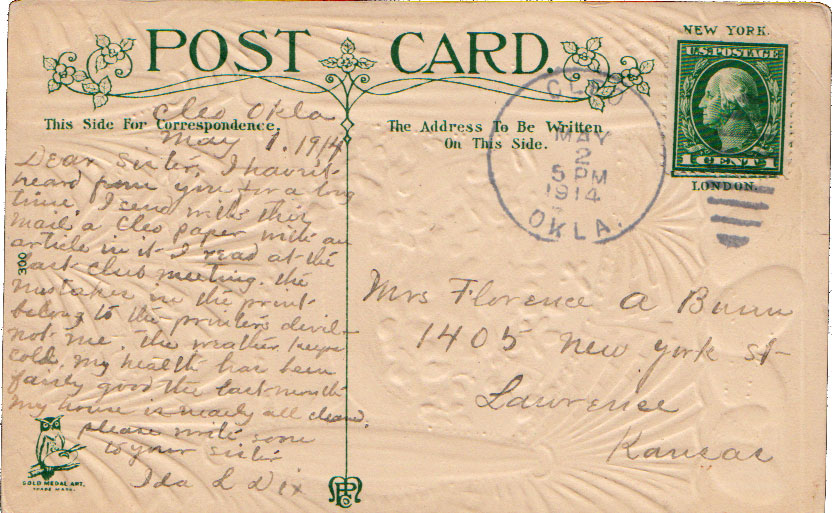 POST CARD.
NEW YORK.
U.S. POSTAGE
1 CENT 1
LONDON.
This Side For Correspondence.
The Address To Be Written
On This Side.
CLEO
MAY
2
5 PM
1914
OKLA.
Cleo Okla
May 1. 1914
Dear Sister, I havn't
heard from you for a long
time, I send with this
mail a Cleo paper with an
article in it I read at the
last club meeting. the
mistakes in the print
belong to the printers devil—
not me, the weather keeps
cold, my health has been
fairly good the last month
my house is nearly all cleaned.
please write soon
to your sister
Ida L Dix
300
GOLD MEDAL ART.
TRADE MARK.
Mrs Florence A Bunn
1405 New York St
Lawrence
Kansas